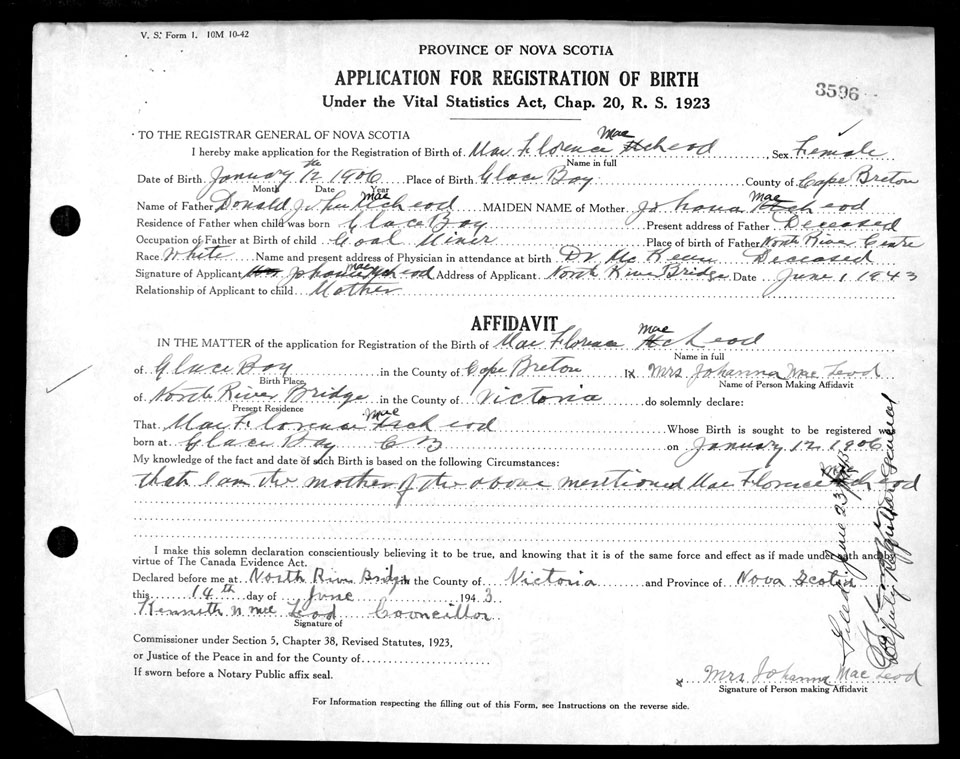 V. S. Form 1. 10M 10-42
PROVINCE OF NOVA SCOTIA
APPLICATION FOR REGISTRATION OF BIRTH
Under the Vital Statistics Act, Chap. 20, R. S. 1923
3596
TO THE REGISTRAR GENERAL OF NOVA SCOTIA
I hereby make application for the Registration of Birth of Mae Florence Mac Leod, Sex Female
Name in full
Date of Birth January 12th 1906 Place of Birth Glace Bay County of Cape Breton
Month Date Year
Name of Father Donald John Mac Leod MAIDEN NAME of Mother Johana Mac Leod
Residence of Father when child was born Glace Bay Present address of Father Deceased
Occupation of Father at Birth of child Coal Miner Place of birth of Father North River Centre
Race White Name and present address of Physician in attendance at birth Dr Mc Keen Deceased
Signature of Applicant Johanna Mac Leod Address of Applicant North River Bridge Date June 1, 1943
Relationship of Applicant to child Mother
AFFIDAVIT
IN THE MATTER of the application for Registration of the Birth of Mae Florence Mac Leod
Name in full
of Glace Bay in the County of Cape Breton I x Mrs Johanna Mac Leod
Birth Place Name of Person Making Affidavit
of North River Bridge in the County of Victoria do solemnly declare:
Present Residence
That Mae Florence Mac Leod Whose Birth is sought to be registered was
born at Glace Bay C B on January 12 1906
My knowledge of the fact and date of such Birth is based on the following Circumstances:
that I am the mother of the above mentioned Mae Florence Mac Leod
I make this solemn declaration conscientiously believing it to be true, and knowing that it is of the same force and effect as if made under oath and by
virtue of The Canada Evidence Act.
Declared before me at North River Bridge in the County of Victoria and Province of Nova Scotia
this 14th day of June 1943
Kenneth N Mac Leod Councillor
Signature of
Commissioner under Section 5, Chapter 38, Revised Statutes, 1923,
or Justice of the Peace in and for the County of
If sworn before a Notary Public affix seal.
x Mrs Johanna Mac Leod
Signature of Person making Affidavit
For Information respecting the filling out of this Form, see Instructions on the reverse side.
Filed June 23
Deputy Registrar General